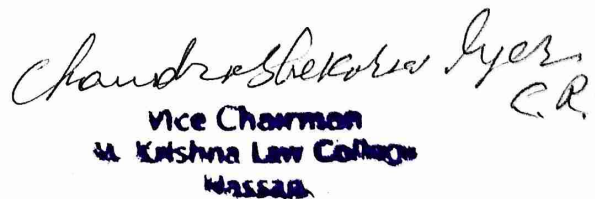 Chandrashekaran Iyer
C.R.
Vice Chairman
M. Krishna Law College
Hassan